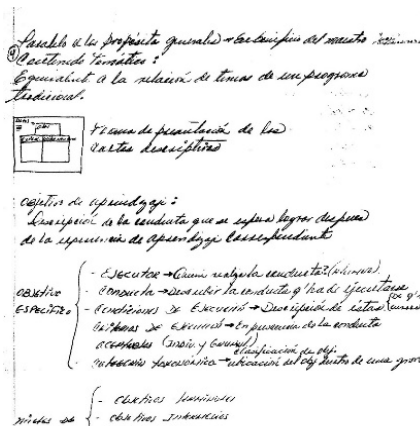 Paralelo a los propósitos generales → en beneficio del maestro
Contenido Temático :
Equivalent a la relación de temas de un programa
tradicional.
Forma de presentación de las
Cartas descriptivas
Objetivo de aprendizaje :
Descripción de la conducta que se espera lograr después
de la experiencia de aprendizaje correspondiente
OBJETIVO
ESPECÍFICO
- EJECUTOR → Quién realiza la conducta? (alumno).
- CONDUCTA → Describir la conducta q' ha de ejecutarse
- CONDICIONES DE EJECUCIÓN → Descripción de éstas
CRITERIOS DE EJECUCIÓN → En presencia de la conducta
clasificación de obj.
- CATEGORÍA TAXONÓMICA → ubicación del obj dentro de una
NIVELES DE
- OBJETIVOS TERMINALES
- OBJETIVOS INTERMEDIOS